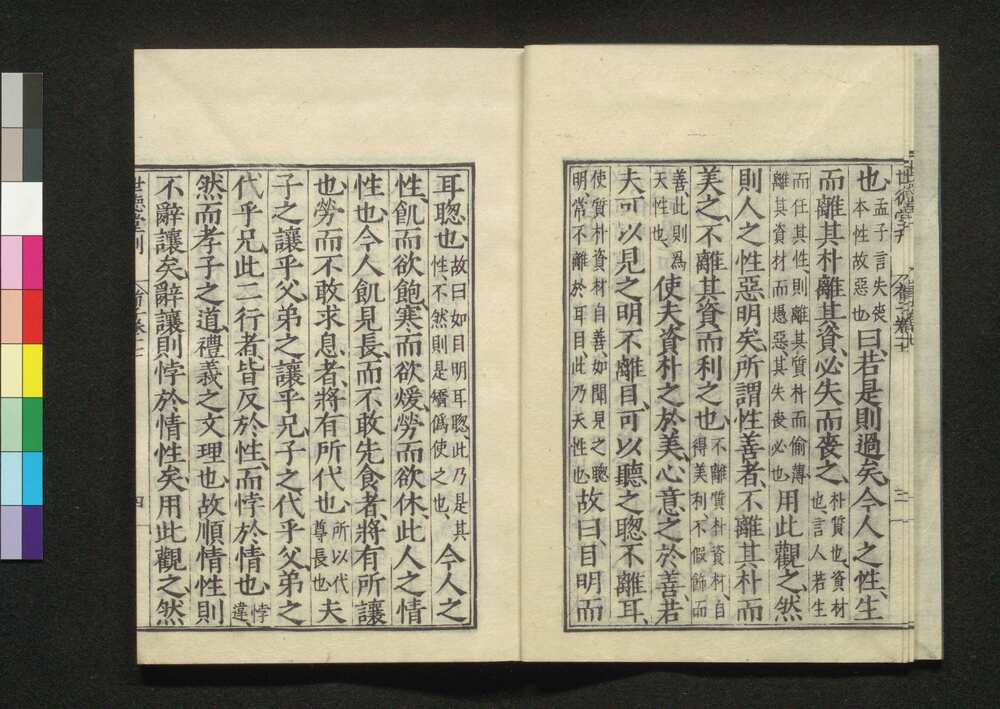 世德堂刊 荀子卷十七 三
也、孟子言失喪本性故惡也曰、若是則過矣、今人之性、生
而離其朴、離其資、必失而喪之、朴質也、資材也、言人若生
而任其性、則離其質朴而偷薄離其資材而愚惡其失喪必也用此觀之、然
則人之性惡明矣、所謂性善者、不離其朴而
美之、不離其資而利之也、不離質朴資材、自得美利、不假飾而
善此則爲天性也、使夫資朴之於美、心意之於善、若
夫可以見之明不離目、可以聽之聰不離耳、
使質朴資材自善、如聞見之聰明常不離於耳目、此乃天性也故曰、目明而
耳聰也、故曰如目明耳聰、此乃是其性、不然則是矯僞使之也、今人之
性、飢而欲飽、寒而欲煖、勞而欲休、此人之情
性也、今人飢見長、而不敢先食者、將有所讓
也、勞而不敢求息者、將有所代也、所以代尊長也夫
子之讓乎父、弟之讓乎兄、子之代乎父、弟之
代乎兄、此二行者、皆反於性、而悖於情也、悖違
然而孝子之道、禮義之文理也、故順情性則
不辭讓矣、辭讓則悖於情性矣、用此觀之、然
世德堂刊 荀子卷十七 四